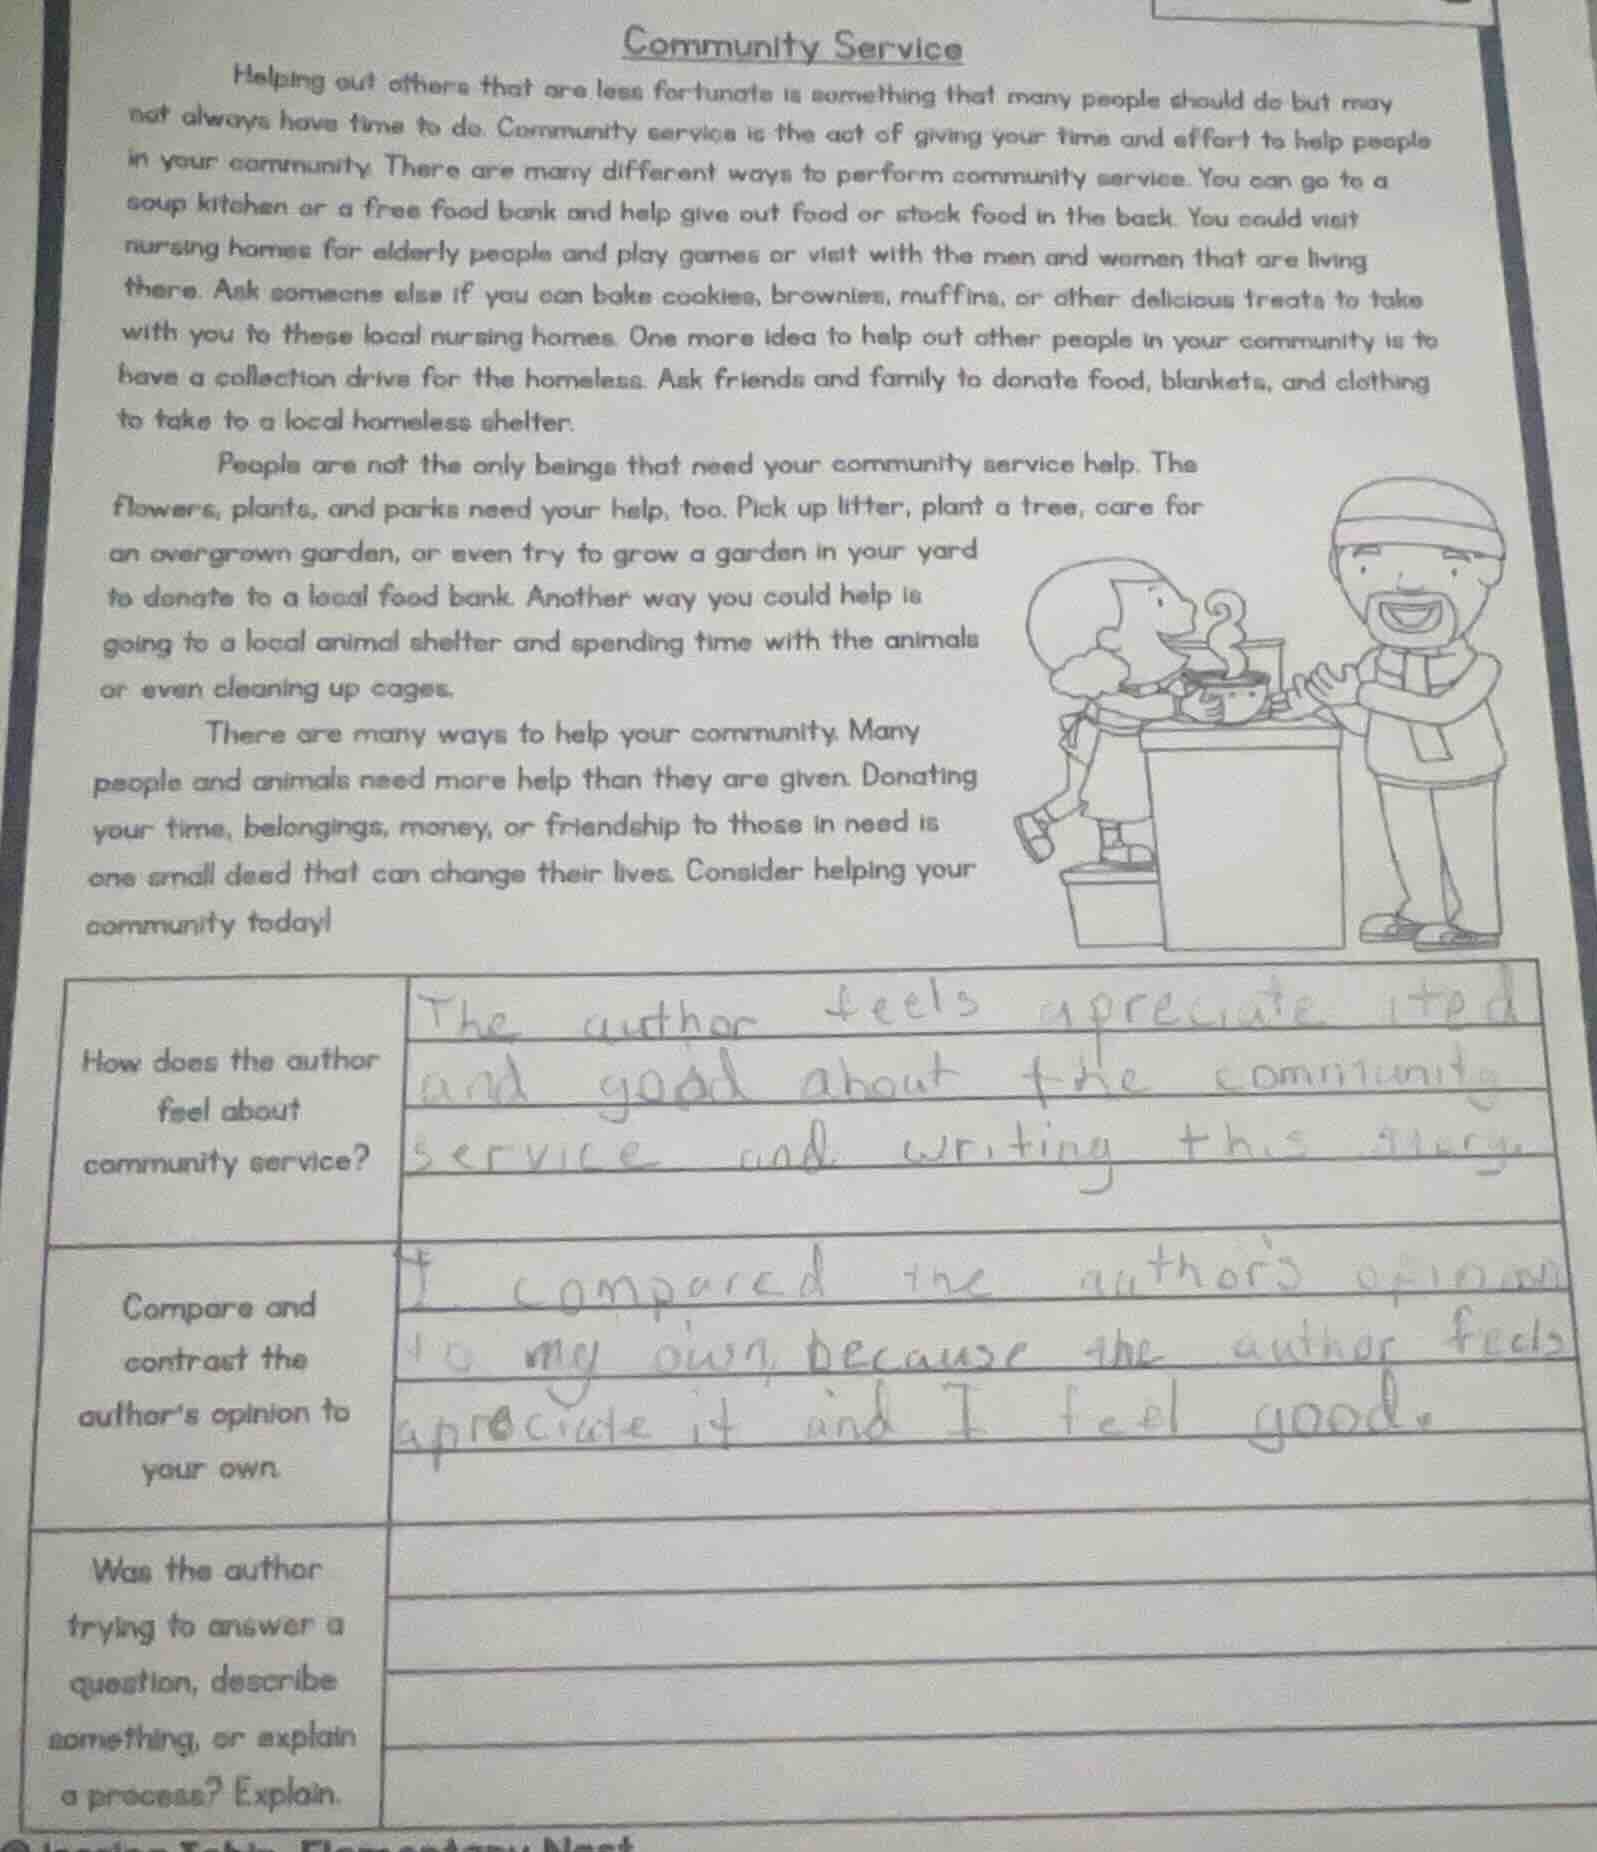 Community Service
Helping out others that are less fortunate is something that many people should do but may
not always have time to do. Community service is the act of giving your time and effort to help people
in your community. There are many different ways to perform community service. You can go to a
soup kitchen or a free food bank and help give out food or stock food in the back. You could visit
nursing homes for elderly people and play games or visit with the men and women that are living
there. Ask someone else if you can bake cookies, brownies, muffins, or other delicious treats to take
with you to these local nursing homes. One more idea to help out other people in your community is to
have a collection drive for the homeless. Ask friends and family to donate food, blankets, and clothing
to take to a local homeless shelter.
People are not the only beings that need your community service help. The
flowers, plants, and parks need your help, too. Pick up litter, plant a tree, care for
an overgrown garden, or even try to grow a garden in your yard
to donate to a local food bank. Another way you could help is
going to a local animal shelter and spending time with the animals
or even cleaning up cages.
There are many ways to help your community. Many
people and animals need more help than they are given. Donating
your time, belongings, money, or friendship to those in need is
one small deed that can change their lives. Consider helping your
community today!
How does the author
feel about
community service?
The author feels apreciate
and good about the community
service and writing this story.
Compare and
contrast the
author's opinion to
your own.
I compared the author's opinion
to my own, because the author feels
apreciate it and I feel good.
Was the author
trying to answer a
question, describe
something, or explain
a process? Explain.
Elementary Nest